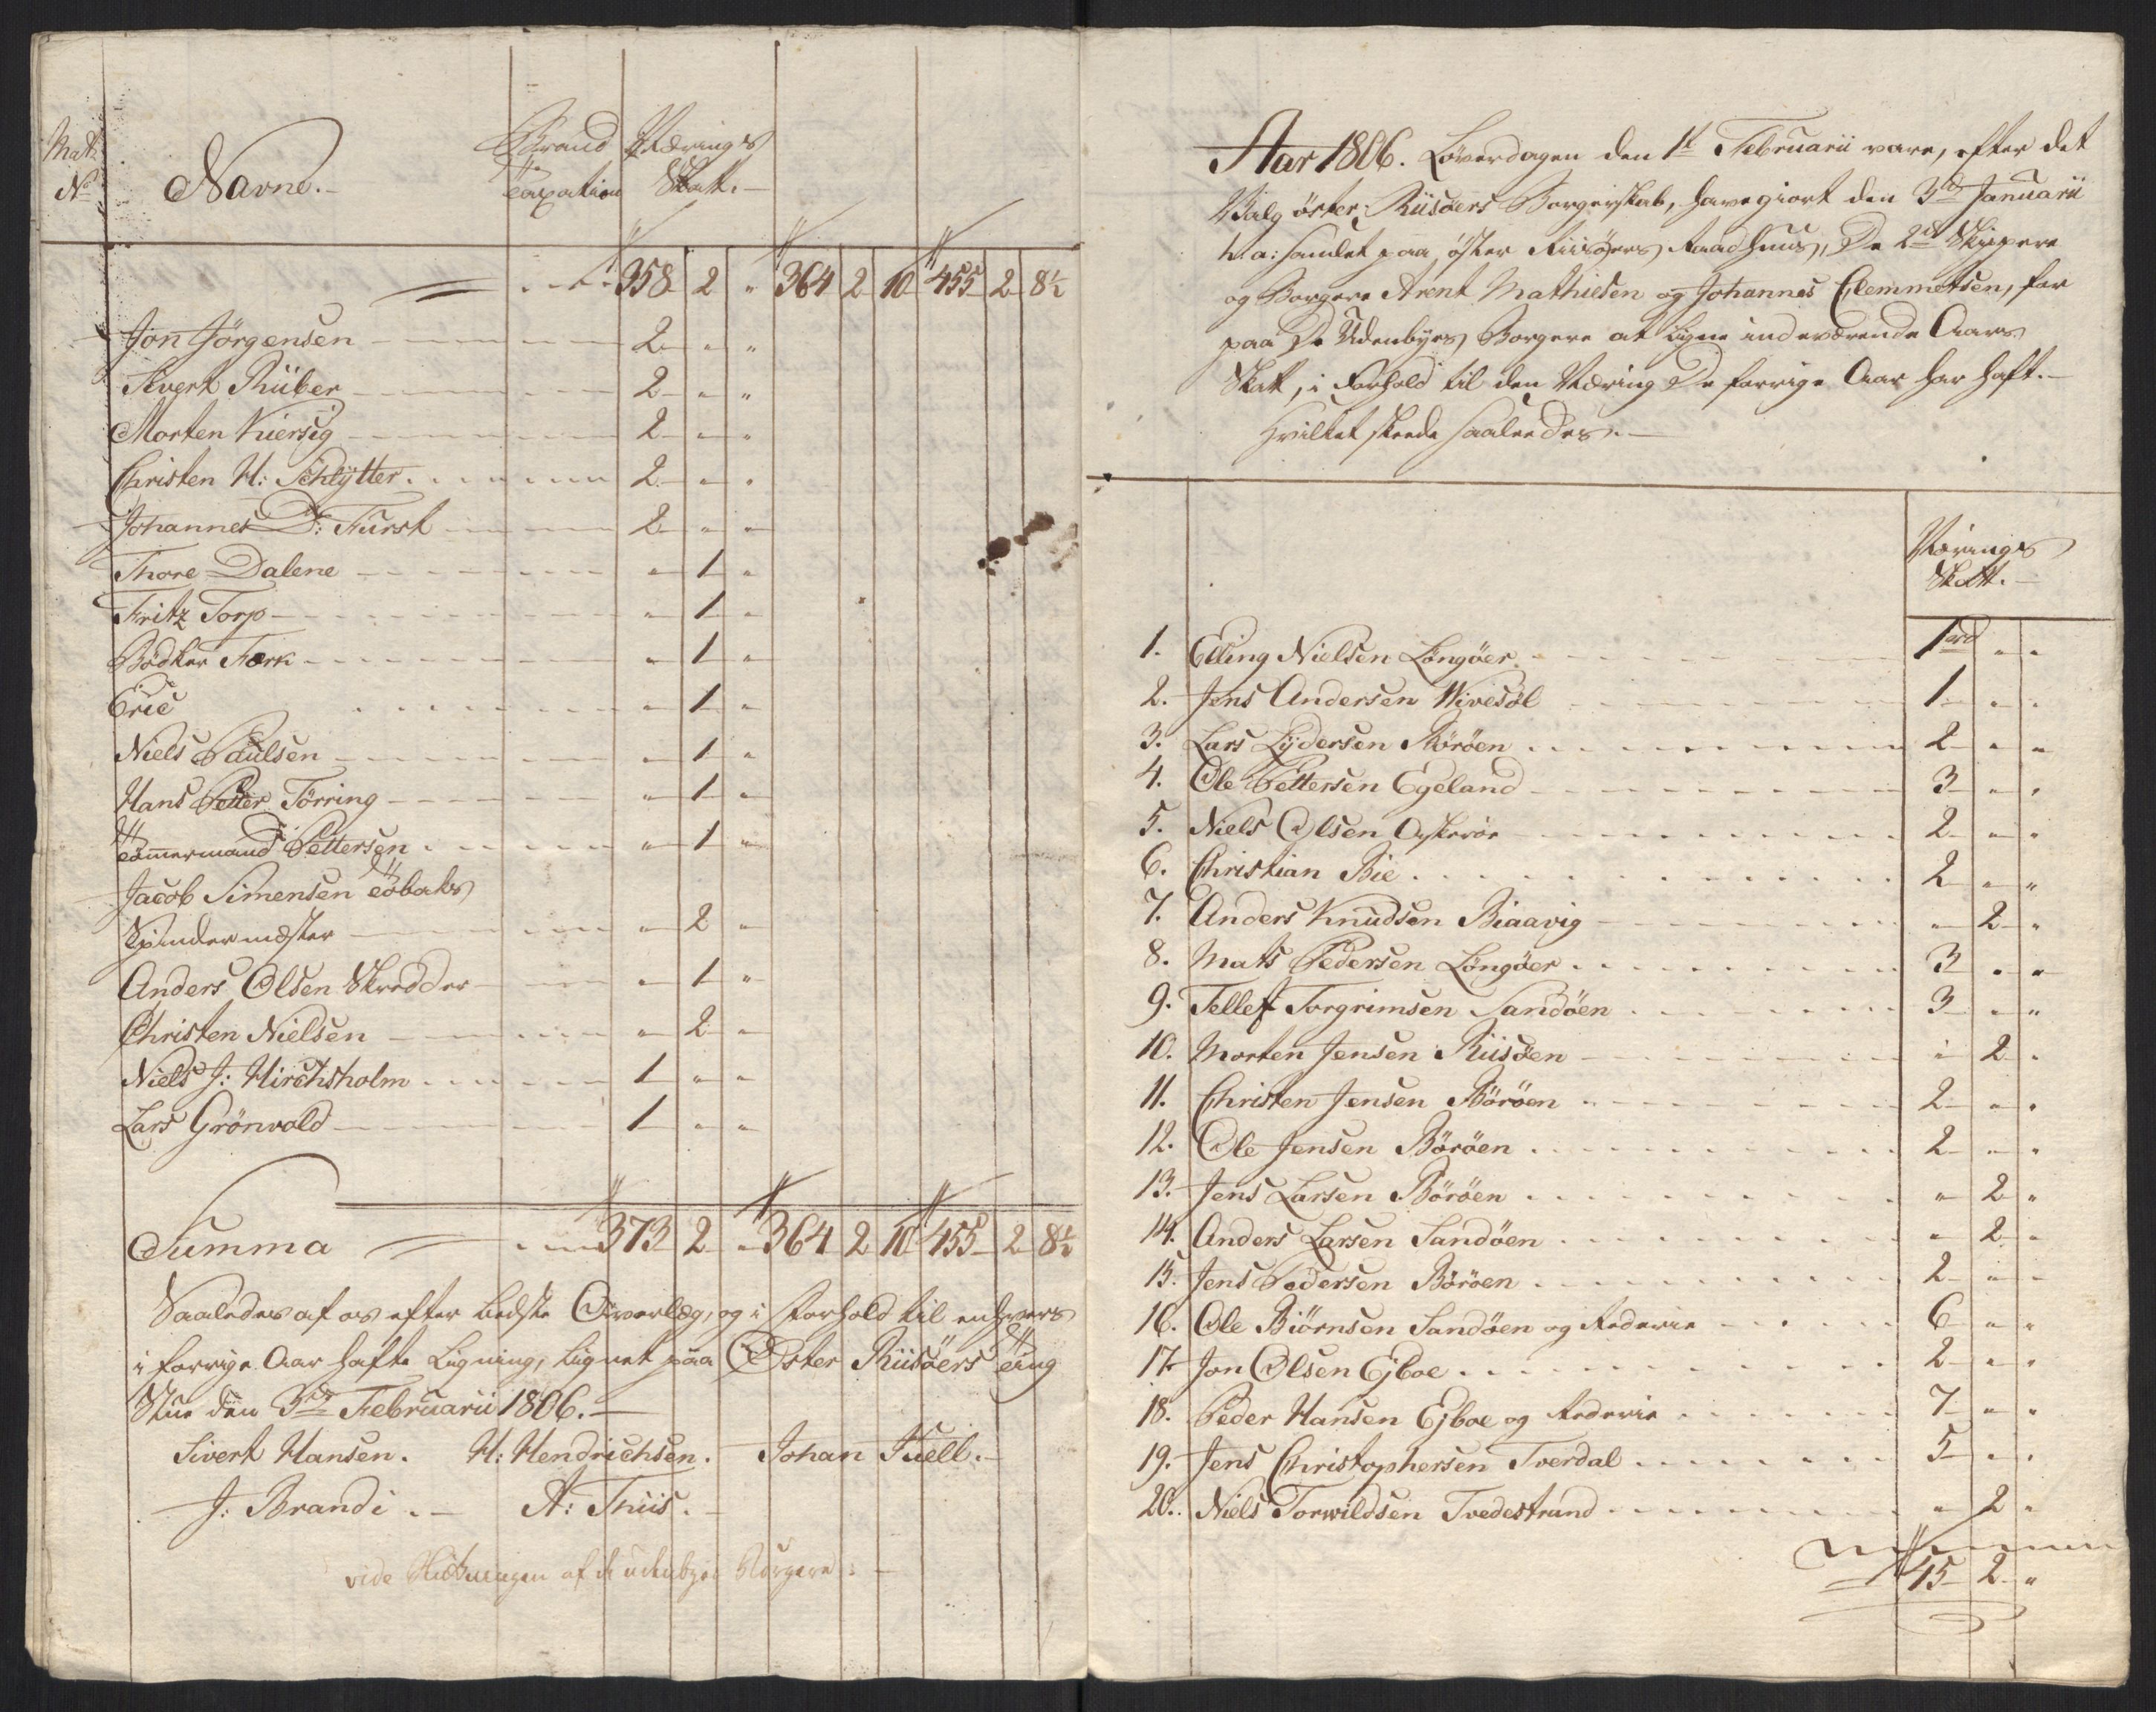 Mat: Brand Nærings
No Navne.- Taxation Skatt.-
" 358 2 " 364 2 10 455 2 8½
Jon Jörgensen 2 " "
Sivert Rüber 2 " "
Morten Kiersig 2 " "
Christen H: Schlÿtter 2 " "
Johannes D: Furst 2 " "
Thore Dalene " 1 "
Fritz Torp " 1 "
Bödker Færk " 1 "
Eric " 1 "
Niels Paulsen " 1 "
Hans Petter Törring " 1 "
Tömermand Pettersen " 1 "
Jacob Simensen Tobaks
Spindermæster " 2 "
Anders Olsen Skredder " 1 "
Christen Nielsen " 2 "
Niels J: Hirchsholm 1 " "
Lars Grönvold 1 " "
Summa 373 2 " 364 2 10 455 2 8½
Saaledes af os efter bedste Overlæg, og i Forhold til enhvers
i forrige Aar hafte Ligning, lignet paa Öster Riisöers Ting
Stue den 3de Februarii 1806.-
Sivert Hansen. H: Hendrichsen. Johan Juell.-
J: Brandi.- A: Thiis.-
vide Ligningen af de udenbyes Borgere:-
Aar 1806. Löverdagen den 1te Februarii vare, efter det
Valg öster Riisöers Borgerskab, have giort den 3de Januarii
h: a: samlet paa öster Riisöers Raadhuus, De 2de Skippere
og Borgere Arent Mathiesen og Johannes Clemmetsen, for
paa De Udenbyes Borgere at ligne indeværende Aars
Skatt, i Forhold til den Næring De forrige Aar har haft.-
Hvilket skeede saaleedes.-
Nærings
Skatt.-
1. Elling Nielsen Löngöer 1rd " "
2. Jens Andersen Wivesöl 1 " "
3. Lars Lÿdersen Böröen 2 " "
4. Ole Pettersen Egeland 3 " "
5. Niels Olsen Askeröe 2 " "
6. Christian Bie 2 " "
7. Anders Knudsen Biaavig " 2 "
8. Mats Pedersen Löngöer 3 " "
9. Tellef Torgrimsen Sandöen 3 " "
10. Morten Jensen Riisöen " 2 "
11. Christen Jensen Böröen 2 " "
12. Ole Jensen Böröen 2 " "
13. Jens Larsen Böröen " 2 "
14. Anders Larsen Sandöen " 2 "
15. Jens Pedersen Böröen 2 " "
16. Ole Biörnsen Sandöen og Rederie 6 " "
17. Jon Olsen Ejboe 2 " "
18. Peder Hansen Ejboe og Rederie 7 " "
19. Jens Christophersen Tverdal 5 " "
20. Niels Torwildsen Tvedestrand " 2 "
45 2 "